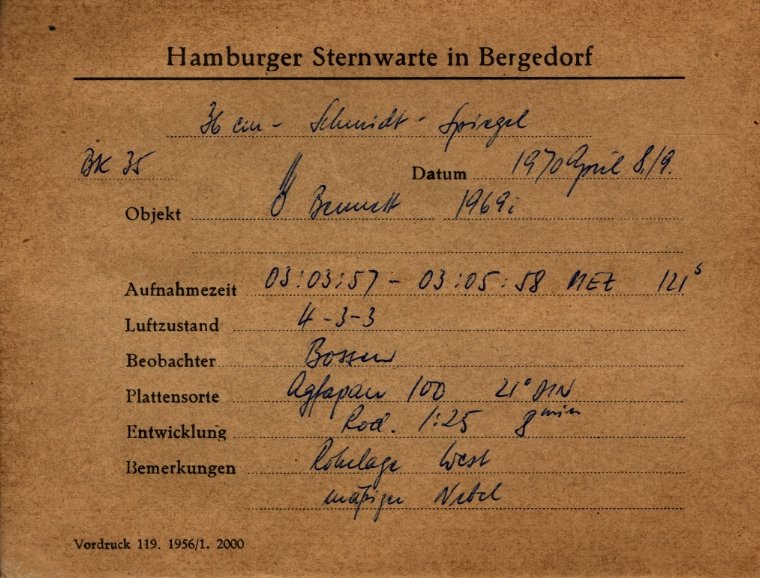 Hamburger Sternwarte in Bergedorf
36 cm - Schmidt - Spiegel
BK 35 Datum 1970 April 8./9.
Objekt ☄ Bennett 1969i
Aufnahmezeit 03:03:57 - 03:05:58 MEZ 121ˢ
Luftzustand 4-3-3
Beobachter Bossen
Plattensorte Agfapan 100 21° DIN
Entwicklung Rod. 1:25 8 min
Bemerkungen Rohrlage West
mäßiger Nebel
Vordruck 119. 1956/1. 2000